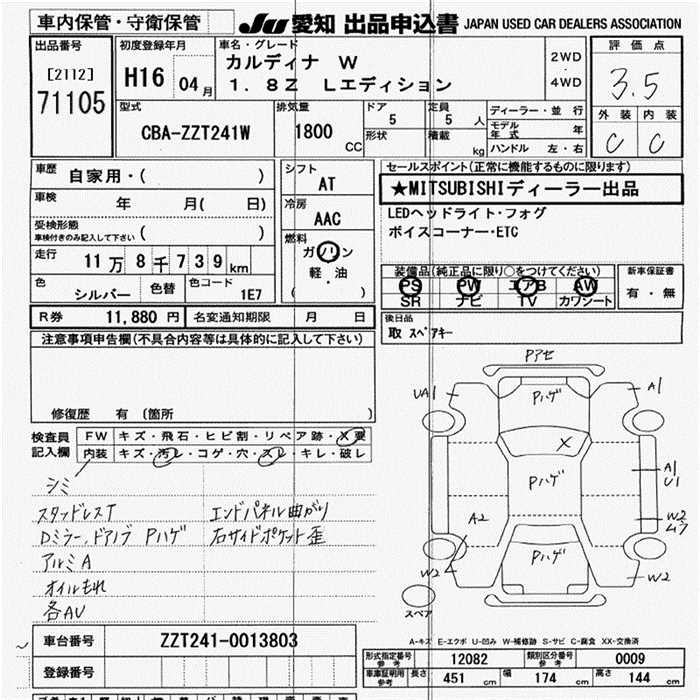 車内保管・守衛保管 JU 愛知 出品申込書 JAPAN USED CAR DEALERS ASSOCIATION
出品番号
[2112]
71105
初度登録年月
H16 04月
車名・グレード
カルディナ W
1.8Z Lエディション
2WD
・
4WD
評価点
3.5
外装 内装
C C
型式
CBA-ZZT241W
排気量
1800 CC
ドア
5
定員
5 人
形状
積載
kg
ディーラー・並 行
モデル年式 年
ハンドル 左・右
車歴 自家用・( )
車検 年 月( 日)
受検形態
車検付きのみ記入して下さい ( )
走行 11万8千739km
色 シルバー 色替 色コード 1E7
シフト
AT
冷房
AAC
燃料
ガソリン
軽・油
( )
セールスポイント(正常に機能するものに限ります)
★MITSUBISHIディーラー出品
LEDヘッドライト・フォグ
ボイスコーナー・ETC
装備品(純正品に限り○をつけてください)
PS PW エアB AW
SR ナビ TV カワシート
新車保証書
有・無
R券 11,880 円 名変通知期限 月 日
後日品
取 スペアキー
注意事項申告欄(不具合内容等は具体的に記入して下さい)
修復歴 有 (箇所 )
検査員
記入欄
FW キズ・飛石・ヒビ割・リペア跡・X要
内装 キズ・汚レ・コゲ・穴・スレ・キレ・破レ
シミ
スタッドレスT エンドパネル曲がり
Dミラー、ドアノブ Pハゲ 右サイドポケット歪
アルミA
オイルもれ
各AU
Pアセ
UA1
Pハゲ
A1
X
Pハゲ
A1
U1
A2
W2
Pハゲ
W2
W2
スペア
A-キズ E-エクボ U-凹み W-補修跡 S-サビ C-腐食 XX-交換済
車台番号 ZZT241-0013803
登録番号
形式指定番号
参考
12082
類別区分番号
参考
0009
車庫証明用
参考
長さ 451 cm 幅 174 cm 高さ 144 cm